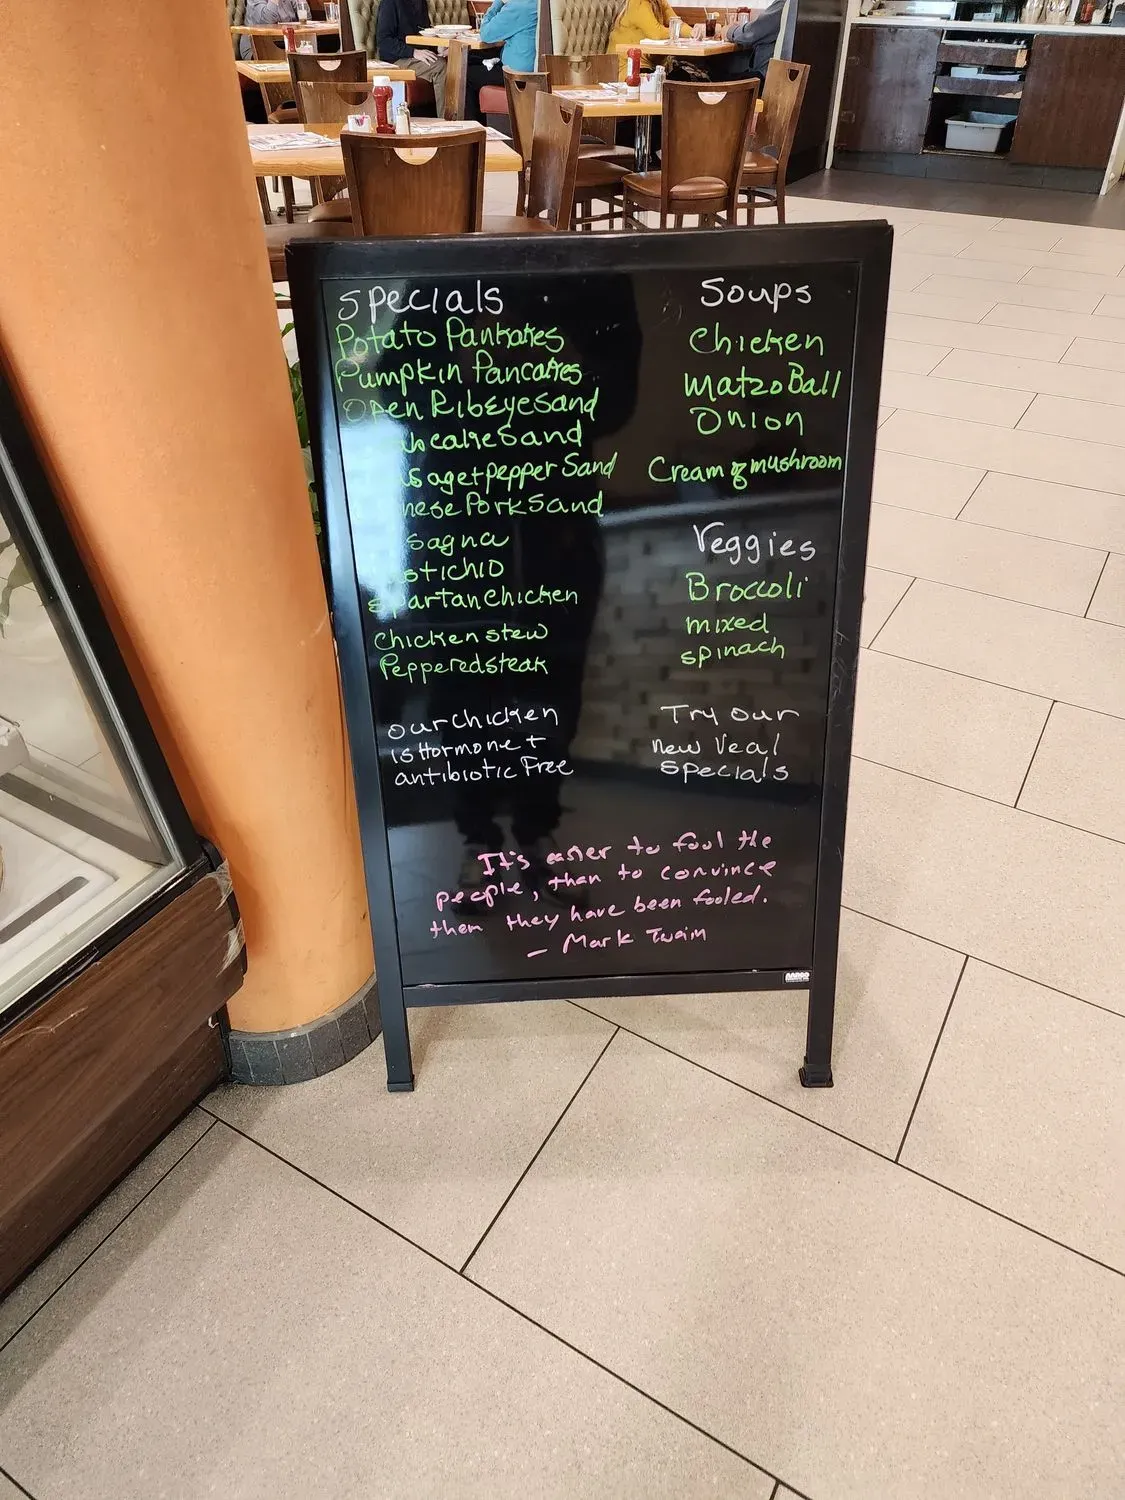 Specials
Potato Pankakes
Pumpkin Pancakes
Open Ribeye Sand
cake Sand
sage + pepper Sand
nese Pork Sand
sagna
stichio
Spartan Chicken
Chicken stew
Peppered steak
our chicken
is Hormone +
antibiotic Free
Soups
Chicken
Matzo Ball
Onion
Cream of mushroom
Veggies
Broccoli
mixed
spinach
Try our
new Veal
Specials
It's easier to fool the
people, than to convince
them they have been fooled.
– Mark Twain